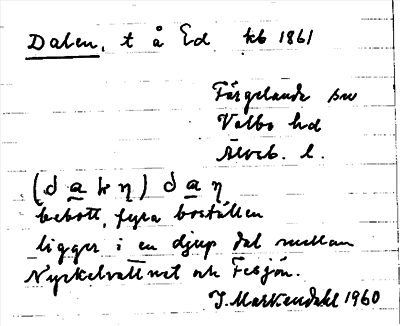 Dalen, t å Ed kb 1861
Färgelanda sn
Valbo hd
Älvsb. l.
(d a l n) d a n
bebott, fyra boställen
ligger i en djup dal mellan
Nyckelvattnet och Fesjön.
J. Markendahl 1960